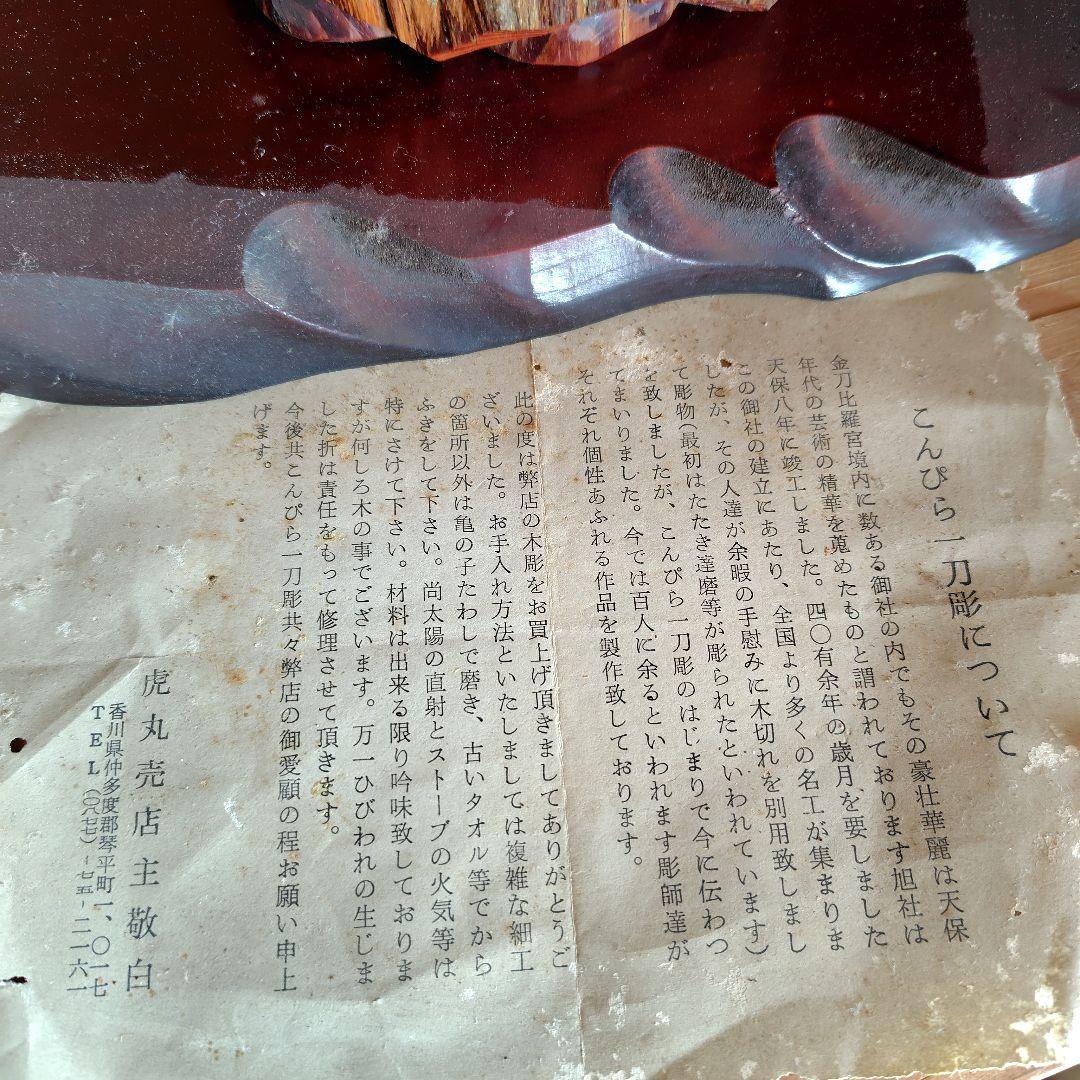 こんぴら一刀彫について
金刀比羅宮境内に数ある御社の内でもその豪壮華麗は天保
年代の芸術の精華を蒐めたものと謂われております旭社は
天保八年に竣工しました。四〇有余年の歳月を要しました
この御社の建立にあたり、全国より多くの名工が集まりま
したが、その人達が余暇の手慰みに木切れを別用致しまし
て彫物(最初はたたき達磨等が彫られたといわれています)
を致しましたが、こんぴら一刀彫のはじまりで今に伝わつ
てまいりました。今では百人に余るといわれます彫師達が
それぞれ個性あふれる作品を製作致しております。
此の度は弊店の木彫をお買上げ頂きましてありがとうご
ざいました。お手入れ方法といたしましては複雑な細工
の箇所以外は亀の子たわしで磨き、古いタオル等でから
ふきをして下さい。尚太陽の直射とストーブの火気等は
特にさけて下さい。材料は出来る限り吟味致しておりま
すが何しろ木の事でございます。万一ひびわれの生じま
した折は責任をもって修理させて頂きます。
今後共こんぴら一刀彫共々弊店の御愛顧の程お願い申上
げます。
虎丸売店主敬白
香川県仲多度郡琴平町一、〇一七
TEL(〇八七七)-七五-二一六一